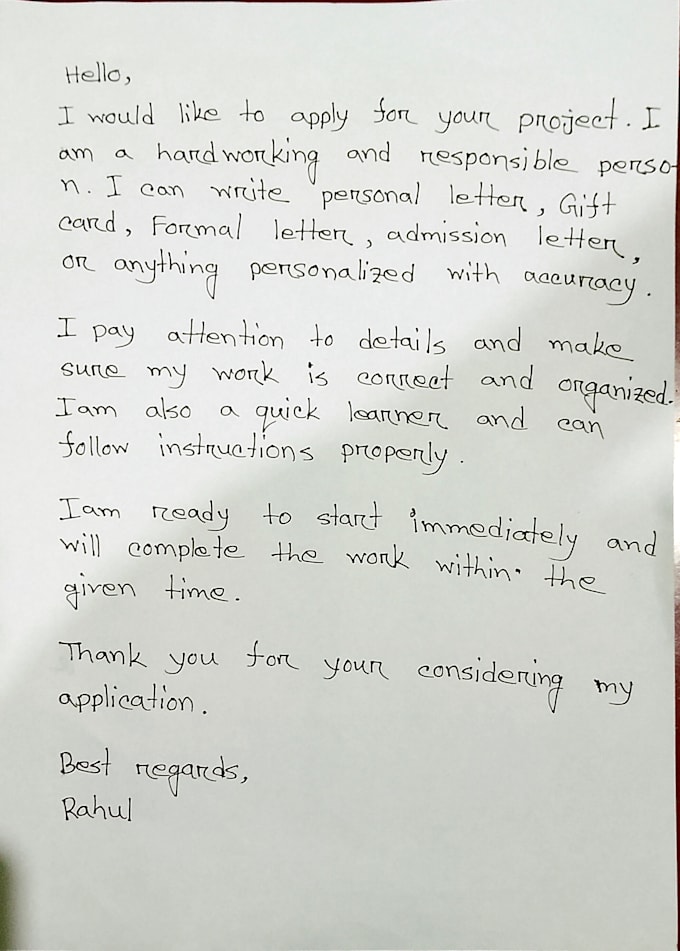 Hello,
I would like to apply for your project. I
am a hardworking and responsible perso-
n. I can write personal letter, Gift
card, Formal letter, admission letter,
or anything personalized with accuracy.
I pay attention to details and make
sure my work is correct and organized.
Iam also a quick learner and can
follow instructions properly.
Iam ready to start immediately and
will complete the work within. the
given time.
Thank you for your considering my
application.
Best regards,
Rahul